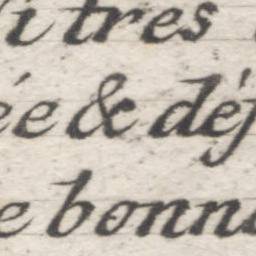 i tres
ée & déj
e bonn